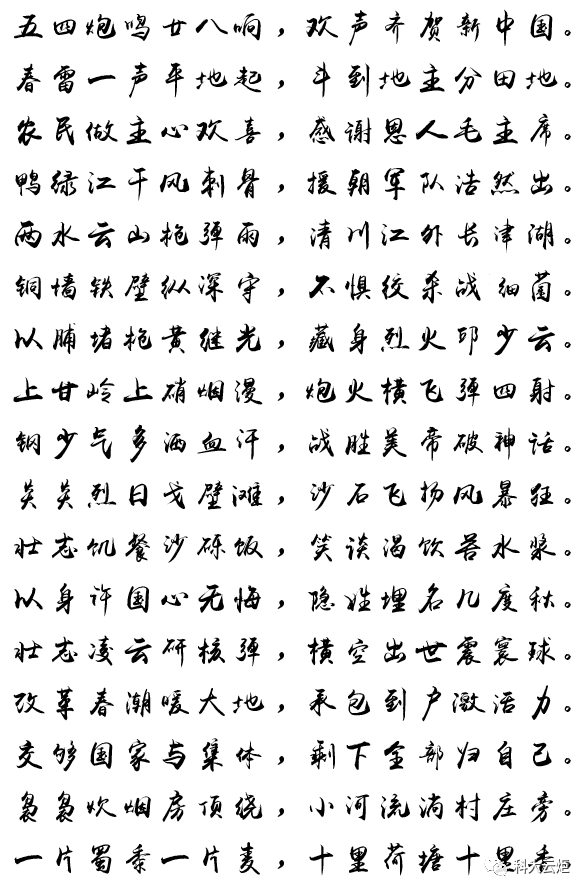 五四炮鸣廿八响，欢声齐贺新中国。
春雷一声平地起，斗到地主分田地。
农民做主心欢喜，感谢恩人毛主席。
鸭绿江干风刺骨，援朝军队浩然出。
两水云山枪弹雨，清川江外长津湖。
铜墙铁壁纵深守，不惧绞杀战细菌。
以脯堵枪黄继光，藏身烈火邱少云。
上甘岭上硝烟漫，炮火横飞弹四射。
钢少气多洒血汗，战胜美帝破神话。
炎炎烈日戈壁滩，沙石飞扬风暴狂。
壮志饥餐沙砾饭，笑谈渴饮苦水浆。
以身许国心无悔，隐姓埋名几度秋。
壮志凌云研核弹，横空出世震寰球。
改革春潮暖大地，承包到户激活力。
交够国家与集体，剩下全部归自己。
袅袅炊烟房顶绕，小河流淌村庄旁。
一片蜀黍一片麦，十里荷塘十里香。
科大云炬